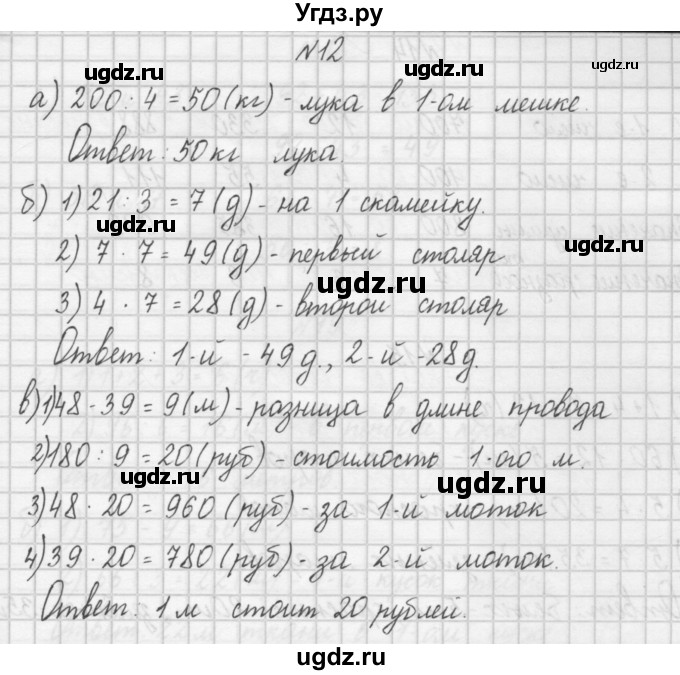 Угдз.ру
№12
ugdz.ru ugdz.ru
а) 200 : 4 = 50 (кг) - лука в 1-ом мешке.
Ответ: 50 кг лука.
ugdz.ru
б) 1) 21 : 3 = 7 (д) - на 1 скамейку.
ugdz.ru ugdz.ru
2) 7 · 7 = 49 (д) - первый столяр
ugdz.ru
3) 4 · 7 = 28 (д) - второй столяр
Ответ: 1-й - 49 д., 2-й - 28 д.
ugdz.ru
в) 1) 48 - 39 = 9 (м) - разница в длине провода
2) 180 : 9 = 20 (руб) - стоимость - 1-ого м.
ugdz.ru ugdz.ru
3) 48 · 20 = 960 (руб) - за 1-й моток
4) 39 · 20 = 780 (руб) - за 2-й моток.
ugdz.ru ugdz.ru
Ответ: 1 м стоит 20 рублей.
ugdz.ru